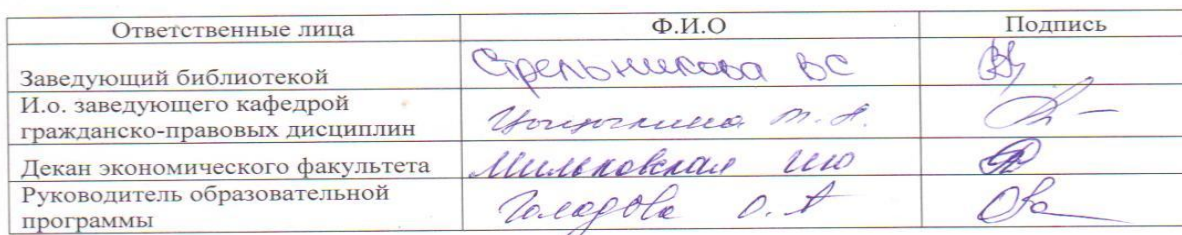 Ответственные лица Ф.И.О Подпись
Заведующий библиотекой Стрельникова ВС
И.о. заведующего кафедрой
гражданско-правовых дисциплин
Декан экономического факультета Мильковская ИЮ
Руководитель образовательной
программы О.А